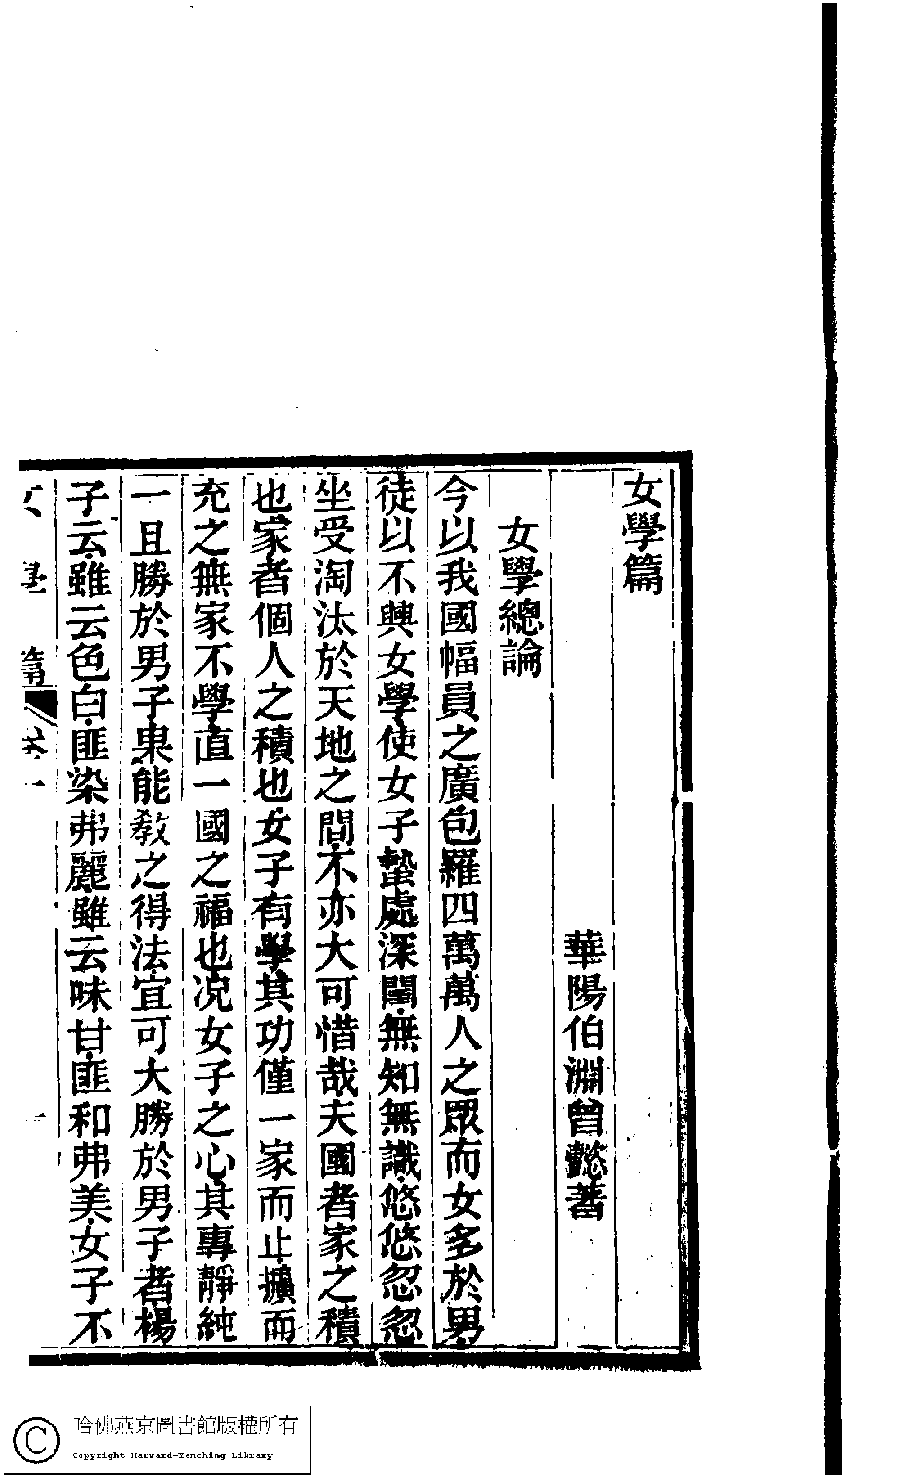 女學篇
華陽伯淵曾懿著
女學總論
今以我國幅員之廣包羅四萬萬人之眾而女多於男
徒以不興女學使女子蟄處深閨無知無識悠悠忽忽
坐受淘汰於天地之間不亦大可惜哉夫國者家之積
也家者個人之積也女子有學其功僅一家而止擴而
充之無家不學直一國之福也况女子之心其專靜純
一且勝於男子果能敎之得法宜可大勝於男子者楊
子云雖云色白匪染弗麗雖云味甘匪和弗美女子不
女學篇 卷一 一
哈佛燕京圖書館版權所有
Copyright Harvard-Yenching Library